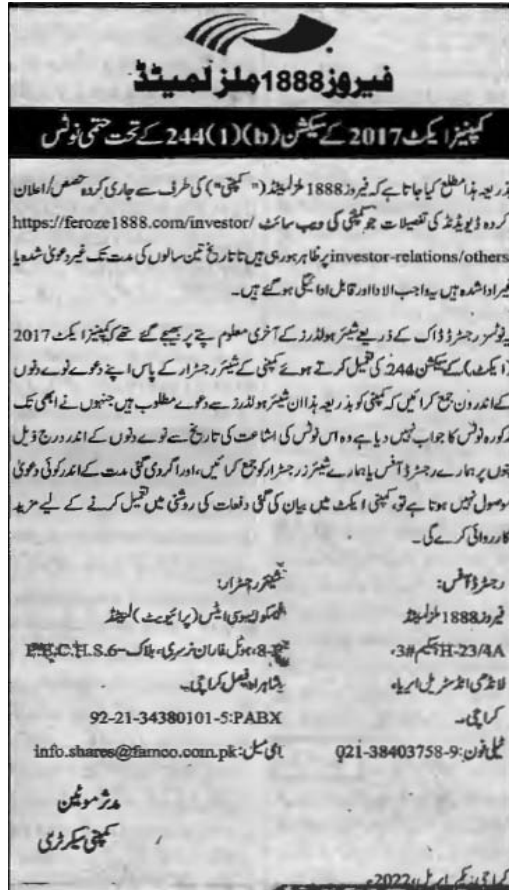 فیروز1888 ملز لمیٹڈ
کمپنیز ایکٹ 2017 کے سیکشن (b)(1)244 کے تحت حتمی نوٹس
بذریعہ ہذا مطلع کیا جاتا ہے کہ فیروز 1888 ملز لمیٹڈ ("کمپنی") کی طرف سے جاری کردہ حصص/اعلان
کردہ ڈیویڈنڈ کی تفصیلات جو کمپنی کی ویب سائٹ https://feroze1888.com/investor/
investor-relations/others پر ظاہر ہو رہی ہیں تا تاریخ تین سالوں کی مدت تک غیر دعویٰ شدہ یا
غیر ادا شدہ ہیں یہ واجب الادا اور قابل ادائیگی ہو گئے ہیں۔
یہ نوٹسز رجسٹرڈ ڈاک کے ذریعے شیئر ہولڈرز کے آخری معلوم پتے پر بھیجے گئے تھے کہ کمپنیز ایکٹ 2017
(ایکٹ) کے سیکشن 244 کی تعمیل کرتے ہوئے کمپنی کے شیئر رجسٹرار کے پاس اپنے دعوے نوے دنوں
کے اندرون جمع کرائیں کہ کمپنی کو بذریعہ ہذا ان شیئر ہولڈرز سے دعوے مطلوب ہیں جنہوں نے ابھی تک
مذکورہ نوٹس کا جواب نہیں دیا ہے وہ اس نوٹس کی اشاعت کی تاریخ سے نوے دنوں کے اندر درج ذیل
پتوں پر ہمارے رجسٹرڈ آفس یا ہمارے شیئرز رجسٹرار کو جمع کرائیں، اور اگر دی گئی مدت کے اندر کوئی دعویٰ
موصول نہیں ہوتا ہے تو، کمپنی ایکٹ میں بیان کی گئی دفعات کی روشنی میں تعمیل کرنے کے لیے مزید
کارروائی کرے گی۔
رجسٹرڈ آفس:
فیروز 1888 ملز لمیٹڈ
H-23/4A اسکیم #3،
لانڈھی انڈسٹریل ایریا،
کراچی۔
ٹیلی فون: 021-38403758-9
شیئر رجسٹرار:
فیمکو ایسوسی ایٹس (پرائیویٹ) لمیٹڈ
8-F، ہوٹل فاران نرسری، بلاک-6 P.E.C.H.S.
شاہراہ فیصل کراچی۔
92-21-34380101-5:PABX
ای میل: info.shares@famco.com.pk
مدثر موٹین
کمپنی سیکرٹری
کراچی: یکم اپریل، 2022ء